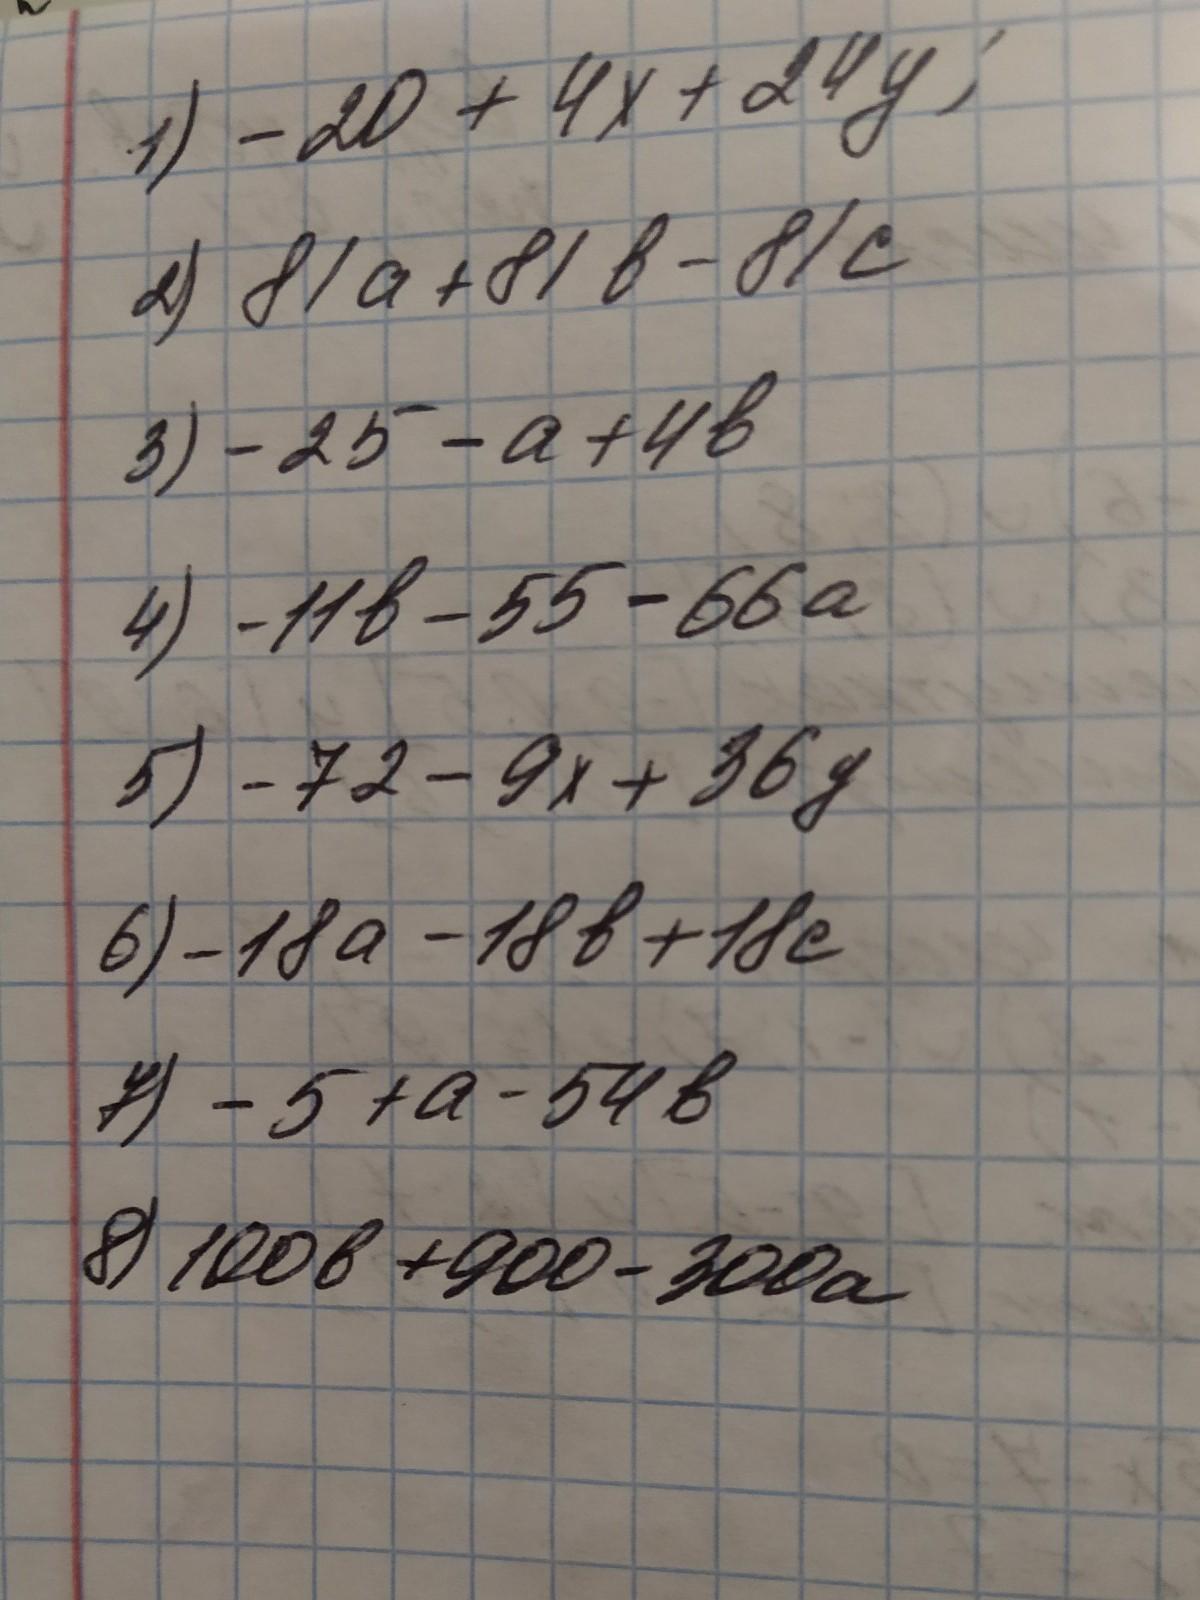 1) -20 + 4x + 24y;
2) 81a + 81в - 81c
3) -25 - a + 4в
4) -11в - 55 - 66a
5) -72 - 9x + 36y
6) -18a - 18в + 18c
7) -5 + a - 54в
8) 100в + 900 - 300a